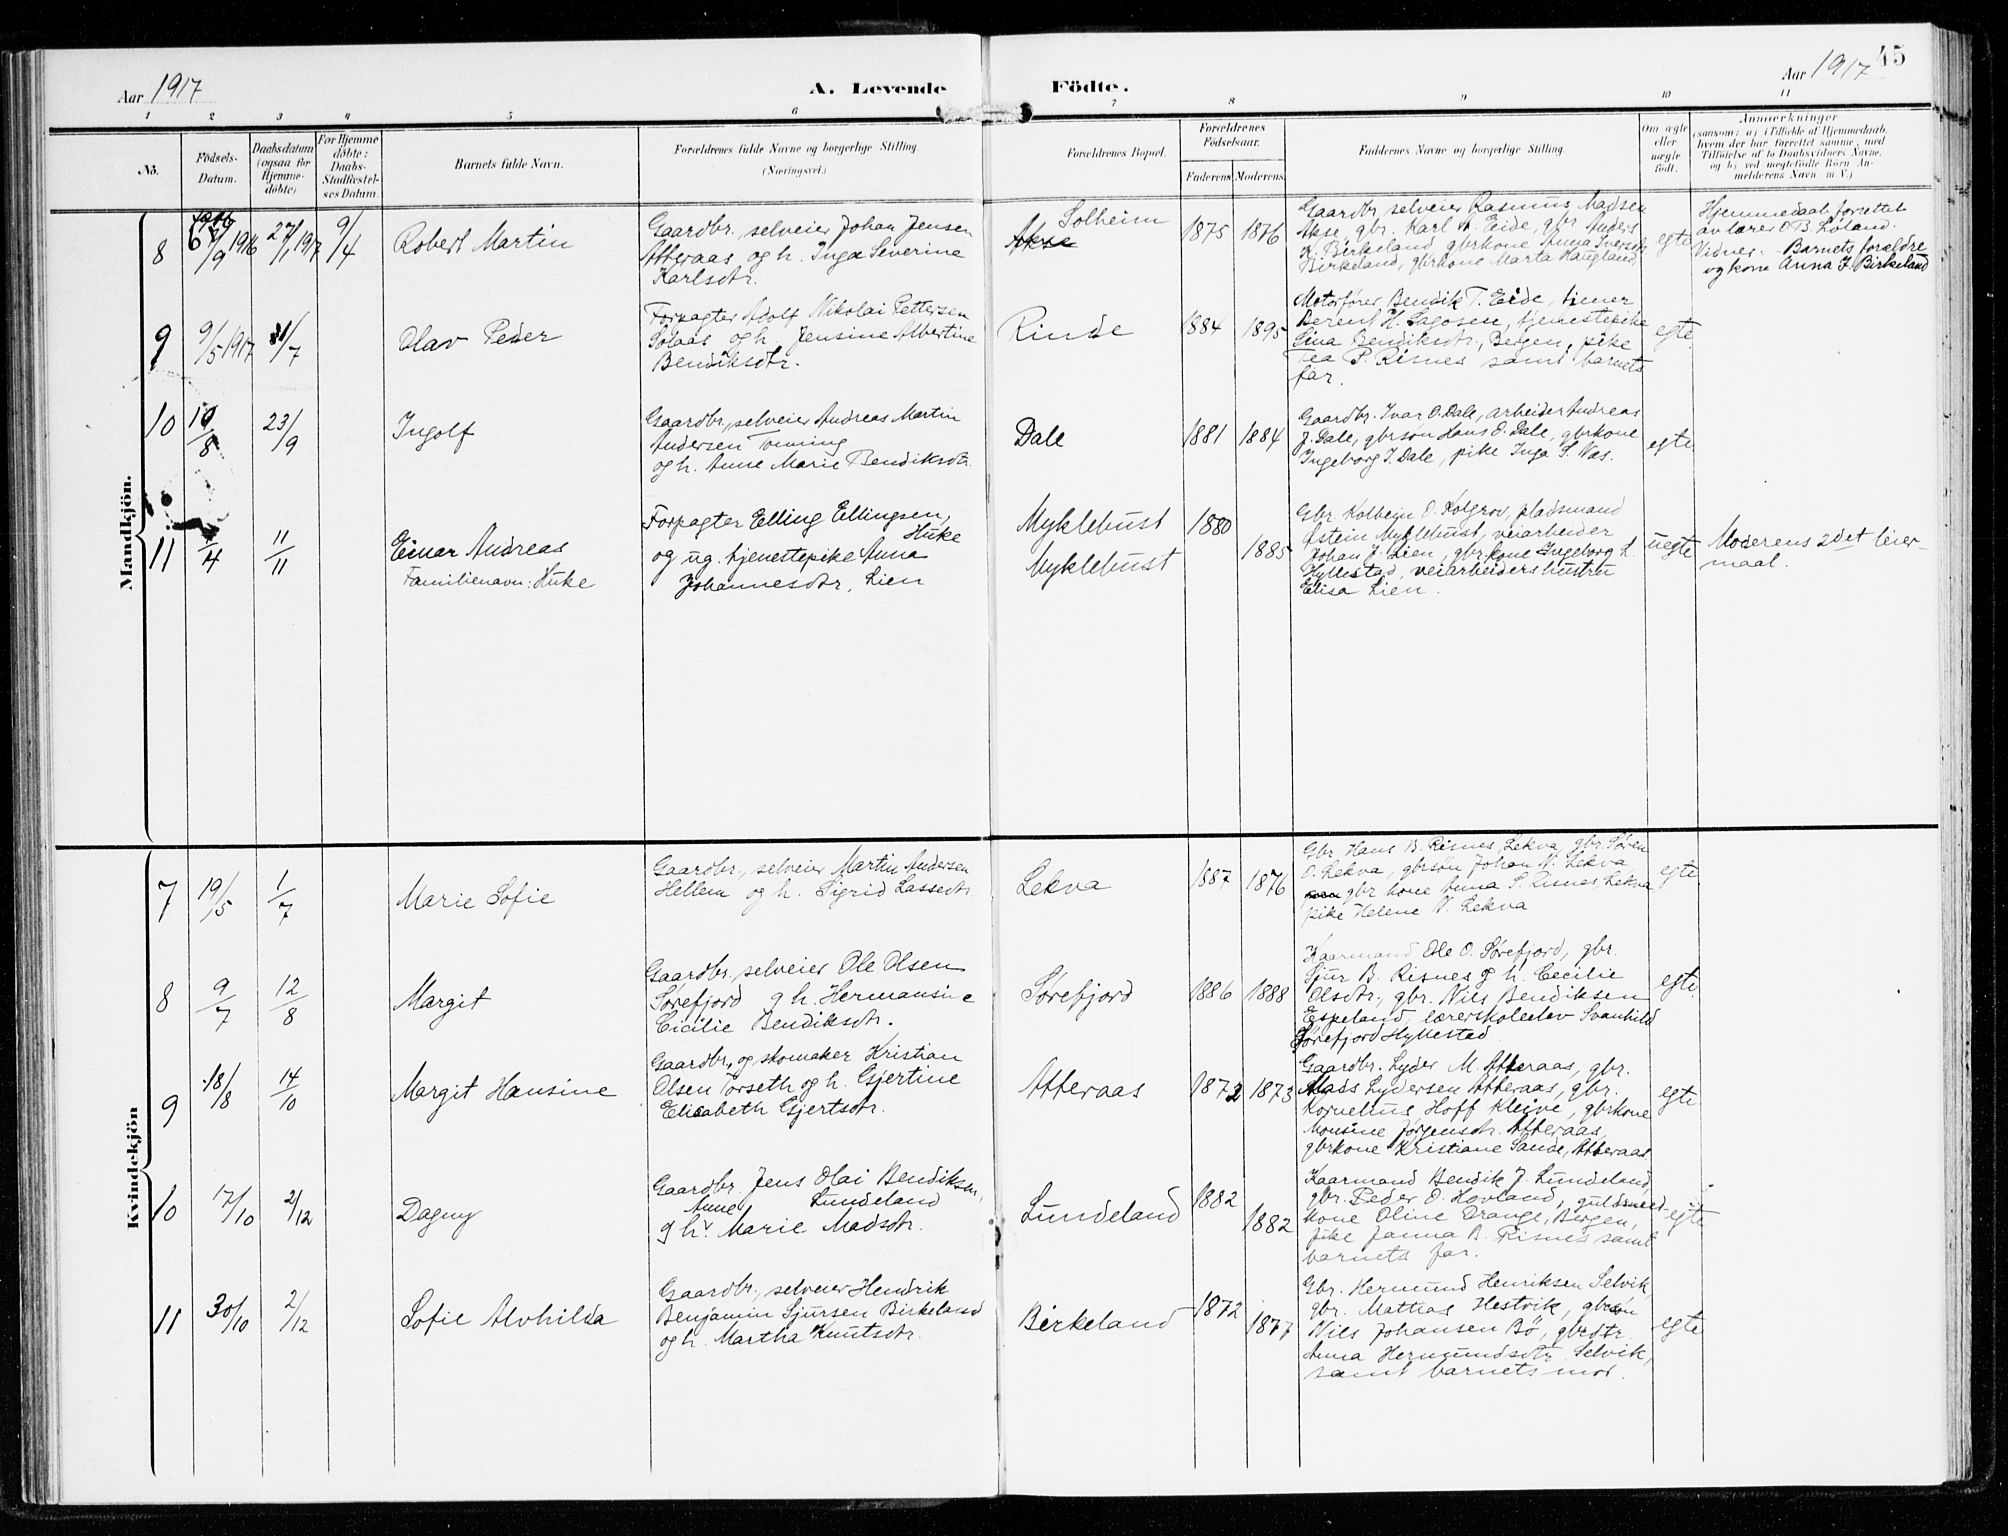 Aar 1917
A. Levende
Födte.
Aar 1917
45
1 2 3 4 5 6 7 8 9 10 11
No.
Födsels-
Datum.
Daabsdatum
(ogsaa for
Hjemme-
döbte)
For Hjemme
döbte:
Daabs-
Stadfæstel-
ses Datum.
Barnets fulde Navn.
Forældrenes fulde Navne og borgerlige Stilling.
(Næringsvei.)
Forældrenes Bopæl.
Forældrenes
Födselsaar.
Faderens. Moderens.
Faddernes Navne og borgerlige Stilling.
Om ægte
eller
uægte
födt.
Anmærkninger
(saasom: a) i Tilfælde af Hjemmedaab,
hvem der har forrettet samme, med
Tilföielse af to Daabsvidners Navne,
og b) ved uægtefödte Börn An-
melderens Navn m. V.)
Mandkjön.
8
6/9 1916
27/1 1917
9/4
Robert Martin
Gaardbr., selveier Johan Jensen
Atteraas og h. Inga Severine
Karlsdtr.
Solheim
Akse
1875 1876
Gaardbr. selveier Rasmus Madsen
Akse, gbr. Karl A. Eide, gbr. Anders
K. Birkeland, gbrkone Anna Iversdtr.
Birkeland, gbrkone Marta Haugland.
egte
Hjemmedaab forrettet
av lærer O. B. Löland.
Vidner: Barnets forældre
og kone Anna I. Birkeland
9
9/5 1917
31/7
Olav Peder
Forpagter Adolf Nikolai Pettersen
Solaas og h. Jensine Albertine
Bendiksdtr.
Rinde
1884 1895
Motorfører Bendik T. Eide, tjener
Berent H. Sagosen, tjenestepike
Lina Bendiksdtr., Bergen, pike
Tea P. Risnes samt barnets
far.
egte
10
10/8
23/9
Ingolf
Gaardbr., selveier Andreas Martin
Andersen Tenning
og h. Anne Marie Bendiksdtr.
Dale
1881 1884
Gaardbr. Ivar O. Dale, arbeider Andreas
J. Dale, gbrsøn Hans O. Dale, gbrkone
Ingeborg J. Dale, pike Inga S. Næs.
egte
11
/4
11/11
Einar Andreas
Familienavn: Huke
Forpagter Elling Ellingsen,
Huke
og ug. tjenestepike Anna
Johannesdtr. Lien
Myklebust
Myklebust
1880
1885
Gbr. Kolbein O. Kolgrov, pladsmand
Østein Myklebust, veiarbeider
Johan J. Lien, gbrkone Ingeborg L.
Hyllestad, veiarbeiders hustru
Elisa Lien.
uegte
Moderens 2det leier-
maal.
Kvindekjön
7
19/5
1/7
Marie Sofie
Gaardbr., selveier Martin Andersen
Hellem og h. Sigrid Lassedtr.
Lekva
1887 1876
Gbr. Hans B. Risnes, Lekva, gbr. Søren
O. Lekva, gbrsøn Johan N. Lekva
gbrkone Anna S. Risnes Lekva
pike Helene N. Lekva.
egte
8
9/7
12/8
Margit
Gaardbr., selveier Ole Olsen
Sørefjord og h. Hermansine
Cicilie Bendiksdtr.
Sørefjord
1886 1888
Kaarmand Ole O. Sørefjord, gbr.
Sjur B. Risnes og h. Cecilie
Olsdtr., gbr. Nils Bendiksen
Espeland, lærerskoleelev Svanhild
Sørefjord Hyllestad
egte
9
18/8
14/10
Margit Hansine
Gaardbr., og skomaker Kristian
Olsen Torseth og h. Gjertine
Elisabeth Gjertsdtr.
Atteraas
1872 1873
Gaardbr. Lyder M. Atteraas, gbr.
Mads Lydersen Atteraas, gbr.
Kornelius Hoff Kleive, gbrkone
Monsine Jørgensdtr. Atteraas,
gbrkone Kristiane Sande, Atteraas
egte
10
17/10
2/12
Dagny
Gaardbr. Jens Olai Bendiksen,
Anne Lundeland
og h. Marie Madsdtr.
Lundeland
1882
1882
Kaarmand Bendik J. Lundeland,
gbr. Peder O. Hovland, guldsmed-
kone Oline Drange, Bergen,
pike Janna B. Risnes samt
barnets far.
egte
11
30/10
2/12
Sofie Alvhilda
Gaardbr., selveier Hendrik
Benjamin Sjursen Birkeland
og h. Martha Knutsdtr.
Birkeland
1872
1877
Gbr. Hermund Henriksen Selvik,
gbr. Mathias Hestvik, gbrsøn
Nils Johansen Bö, gbrdtr.
Anna Hermundsdtr. Selvik,
samt barnets mor.
egte